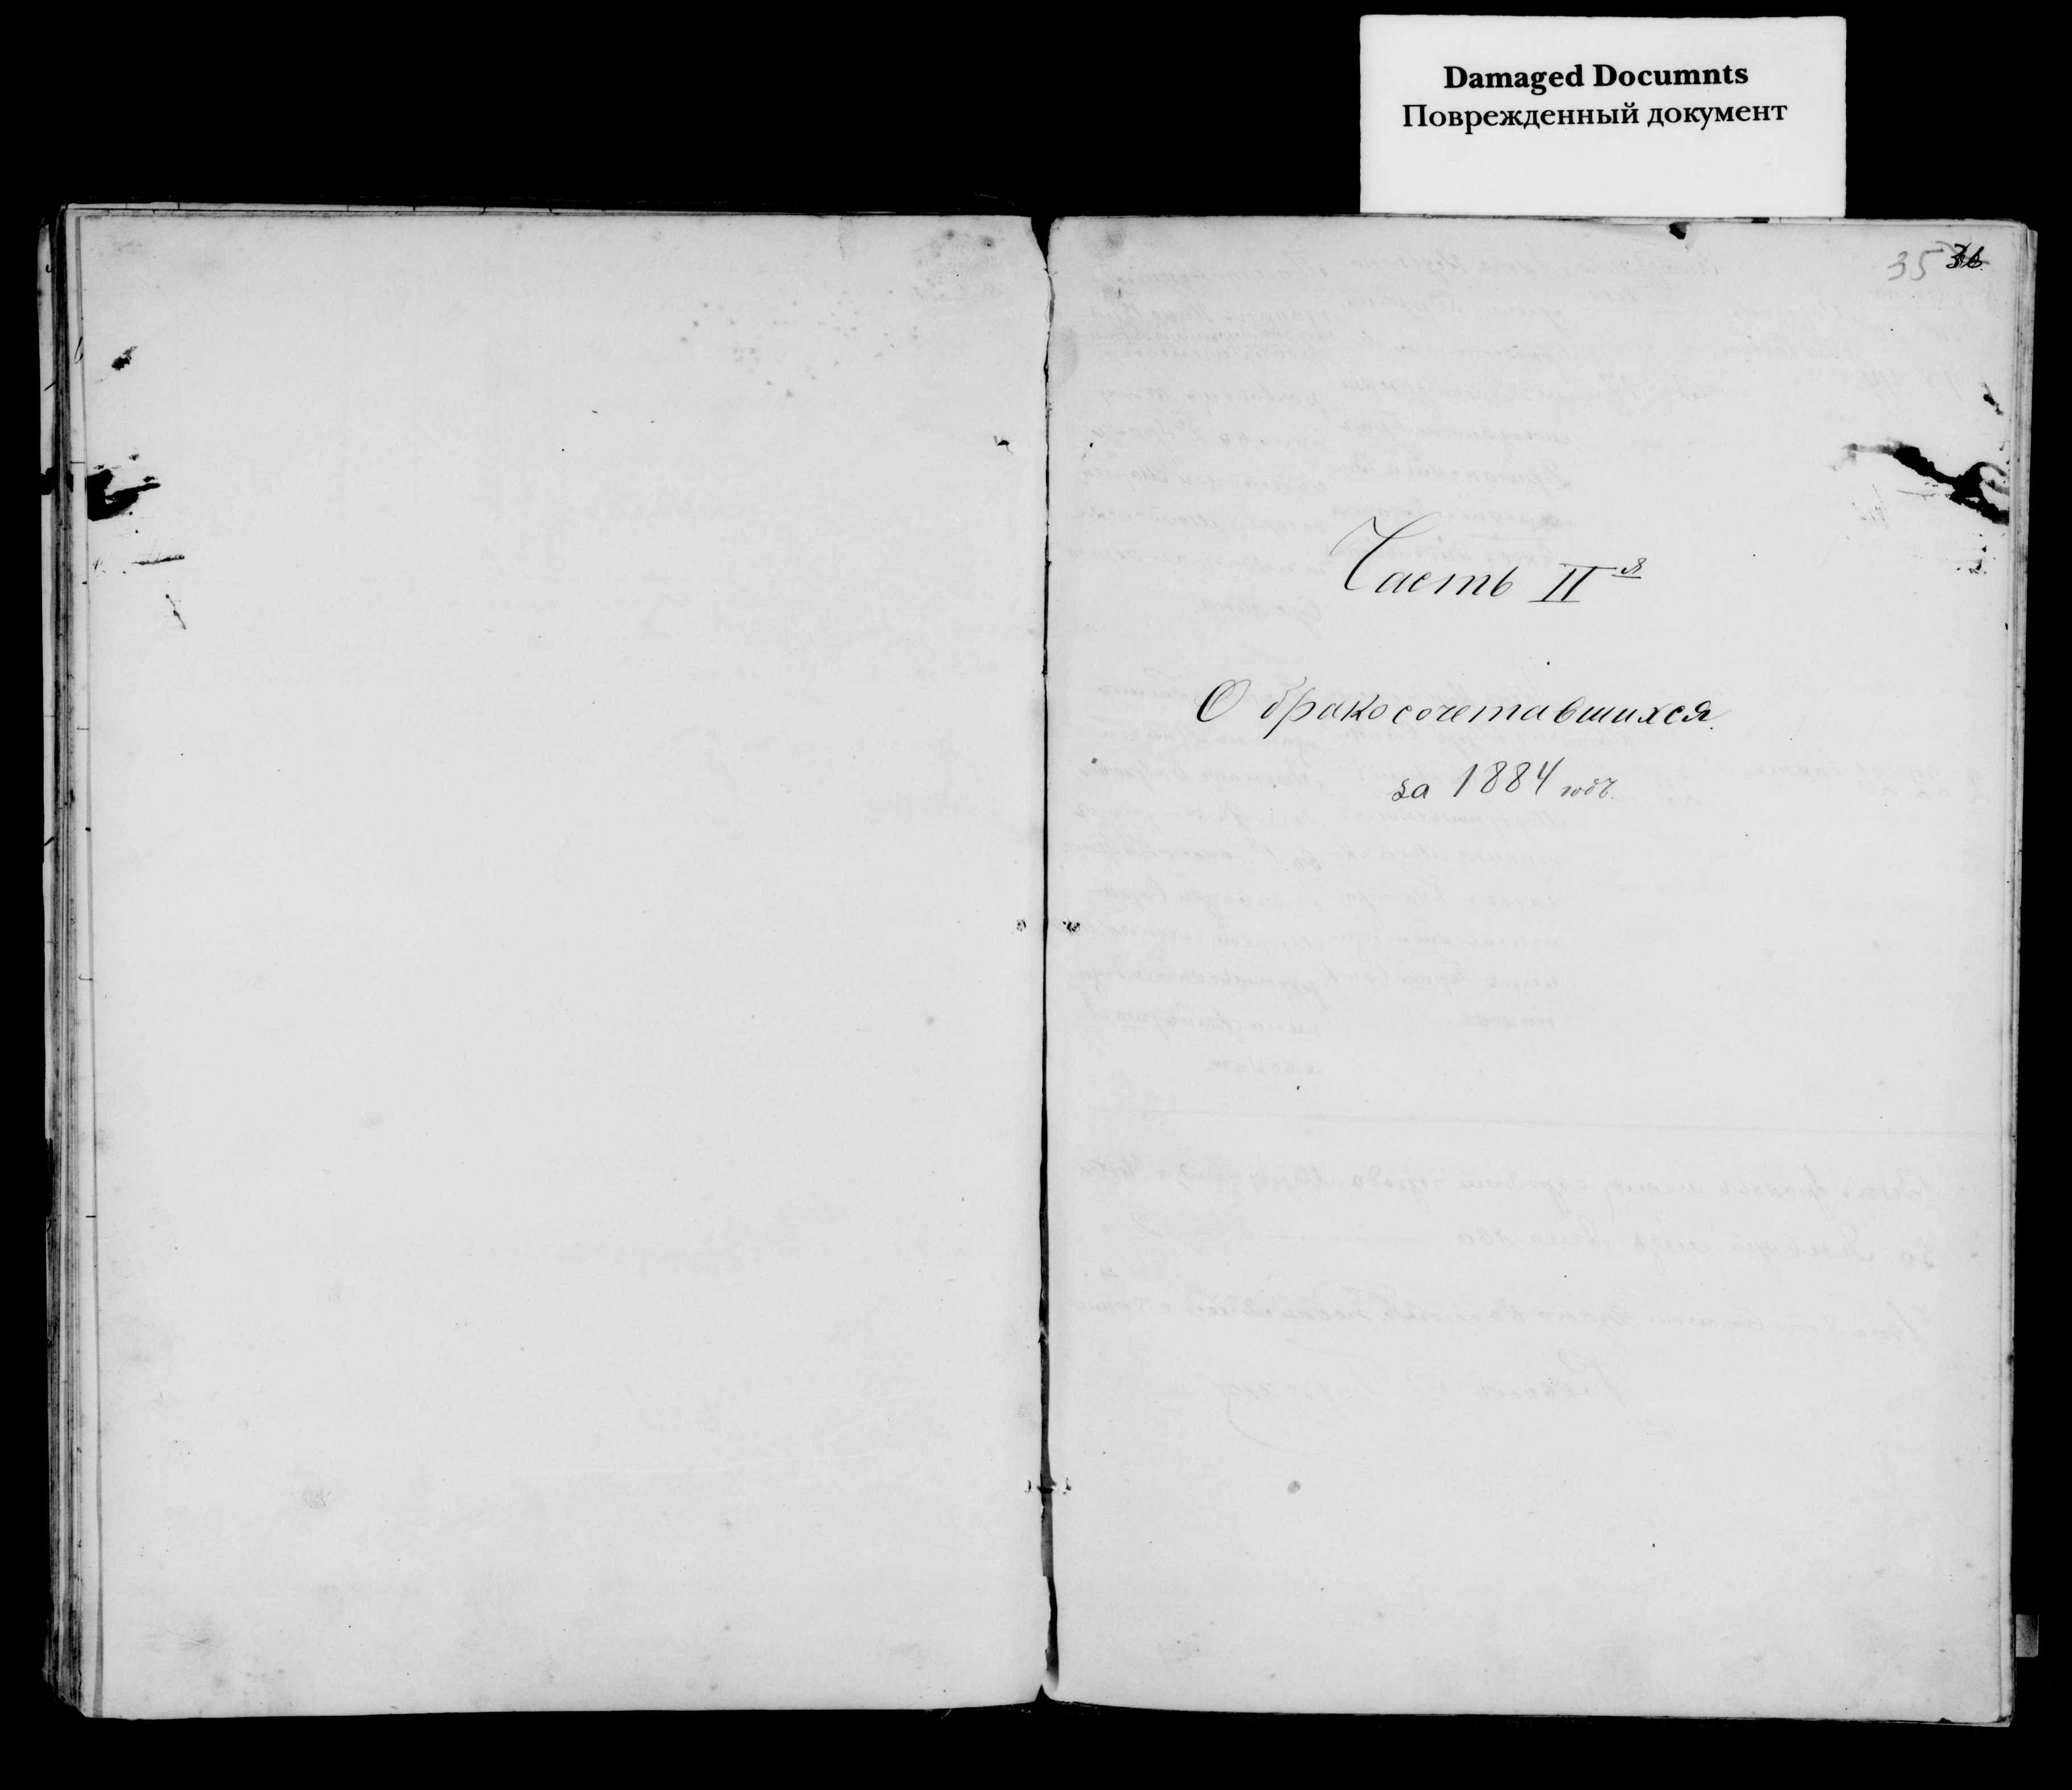 Damaged Documnts
Поврежденный документ
35 36
Часть II-я
О бракосочетавшихся.
за 1884 годъ.